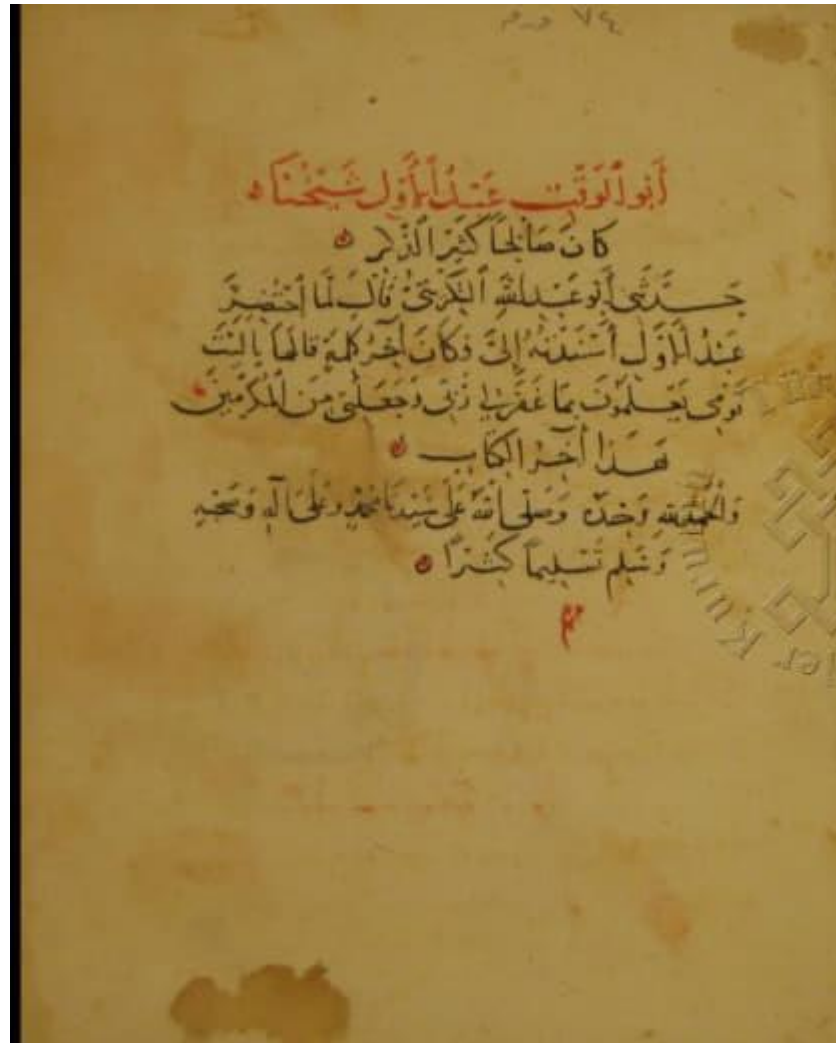 ٧٤ ورق
أَبُو الْوَقْتِ عَبْدُ الْأَوَّلِ شَيْخُنَا
كَانَ صَالِحًا كَثِيرَ الذِّكْرِ
حَدَّثَنِي أَبُو عَبْدِ اللهِ التَّكْرِيتِيُّ قَالَ لَمَّا احْتُضِرَ
عَبْدُ الْأَوَّلِ أَسْنَدْتُهُ إِلَيَّ فَكَانَ آخِرُ كَلِمَةٍ قَالَهَا يَا لَيْتَ
قَوْمِي يَعْلَمُونَ بِمَا غَفَرَ لِي رَبِّي وَجَعَلَنِي مِنَ الْمُكْرَمِينَ
هَذَا آخِرُ الْكِتَابِ
وَالْحَمْدُ لِلهِ وَحْدَهُ وَصَلَّى اللهُ عَلَى سَيِّدِنَا مُحَمَّدٍ وَعَلَى آلِهِ وَصَحْبِهِ
وَسَلَّمَ تَسْلِيمًا كَثِيرًا